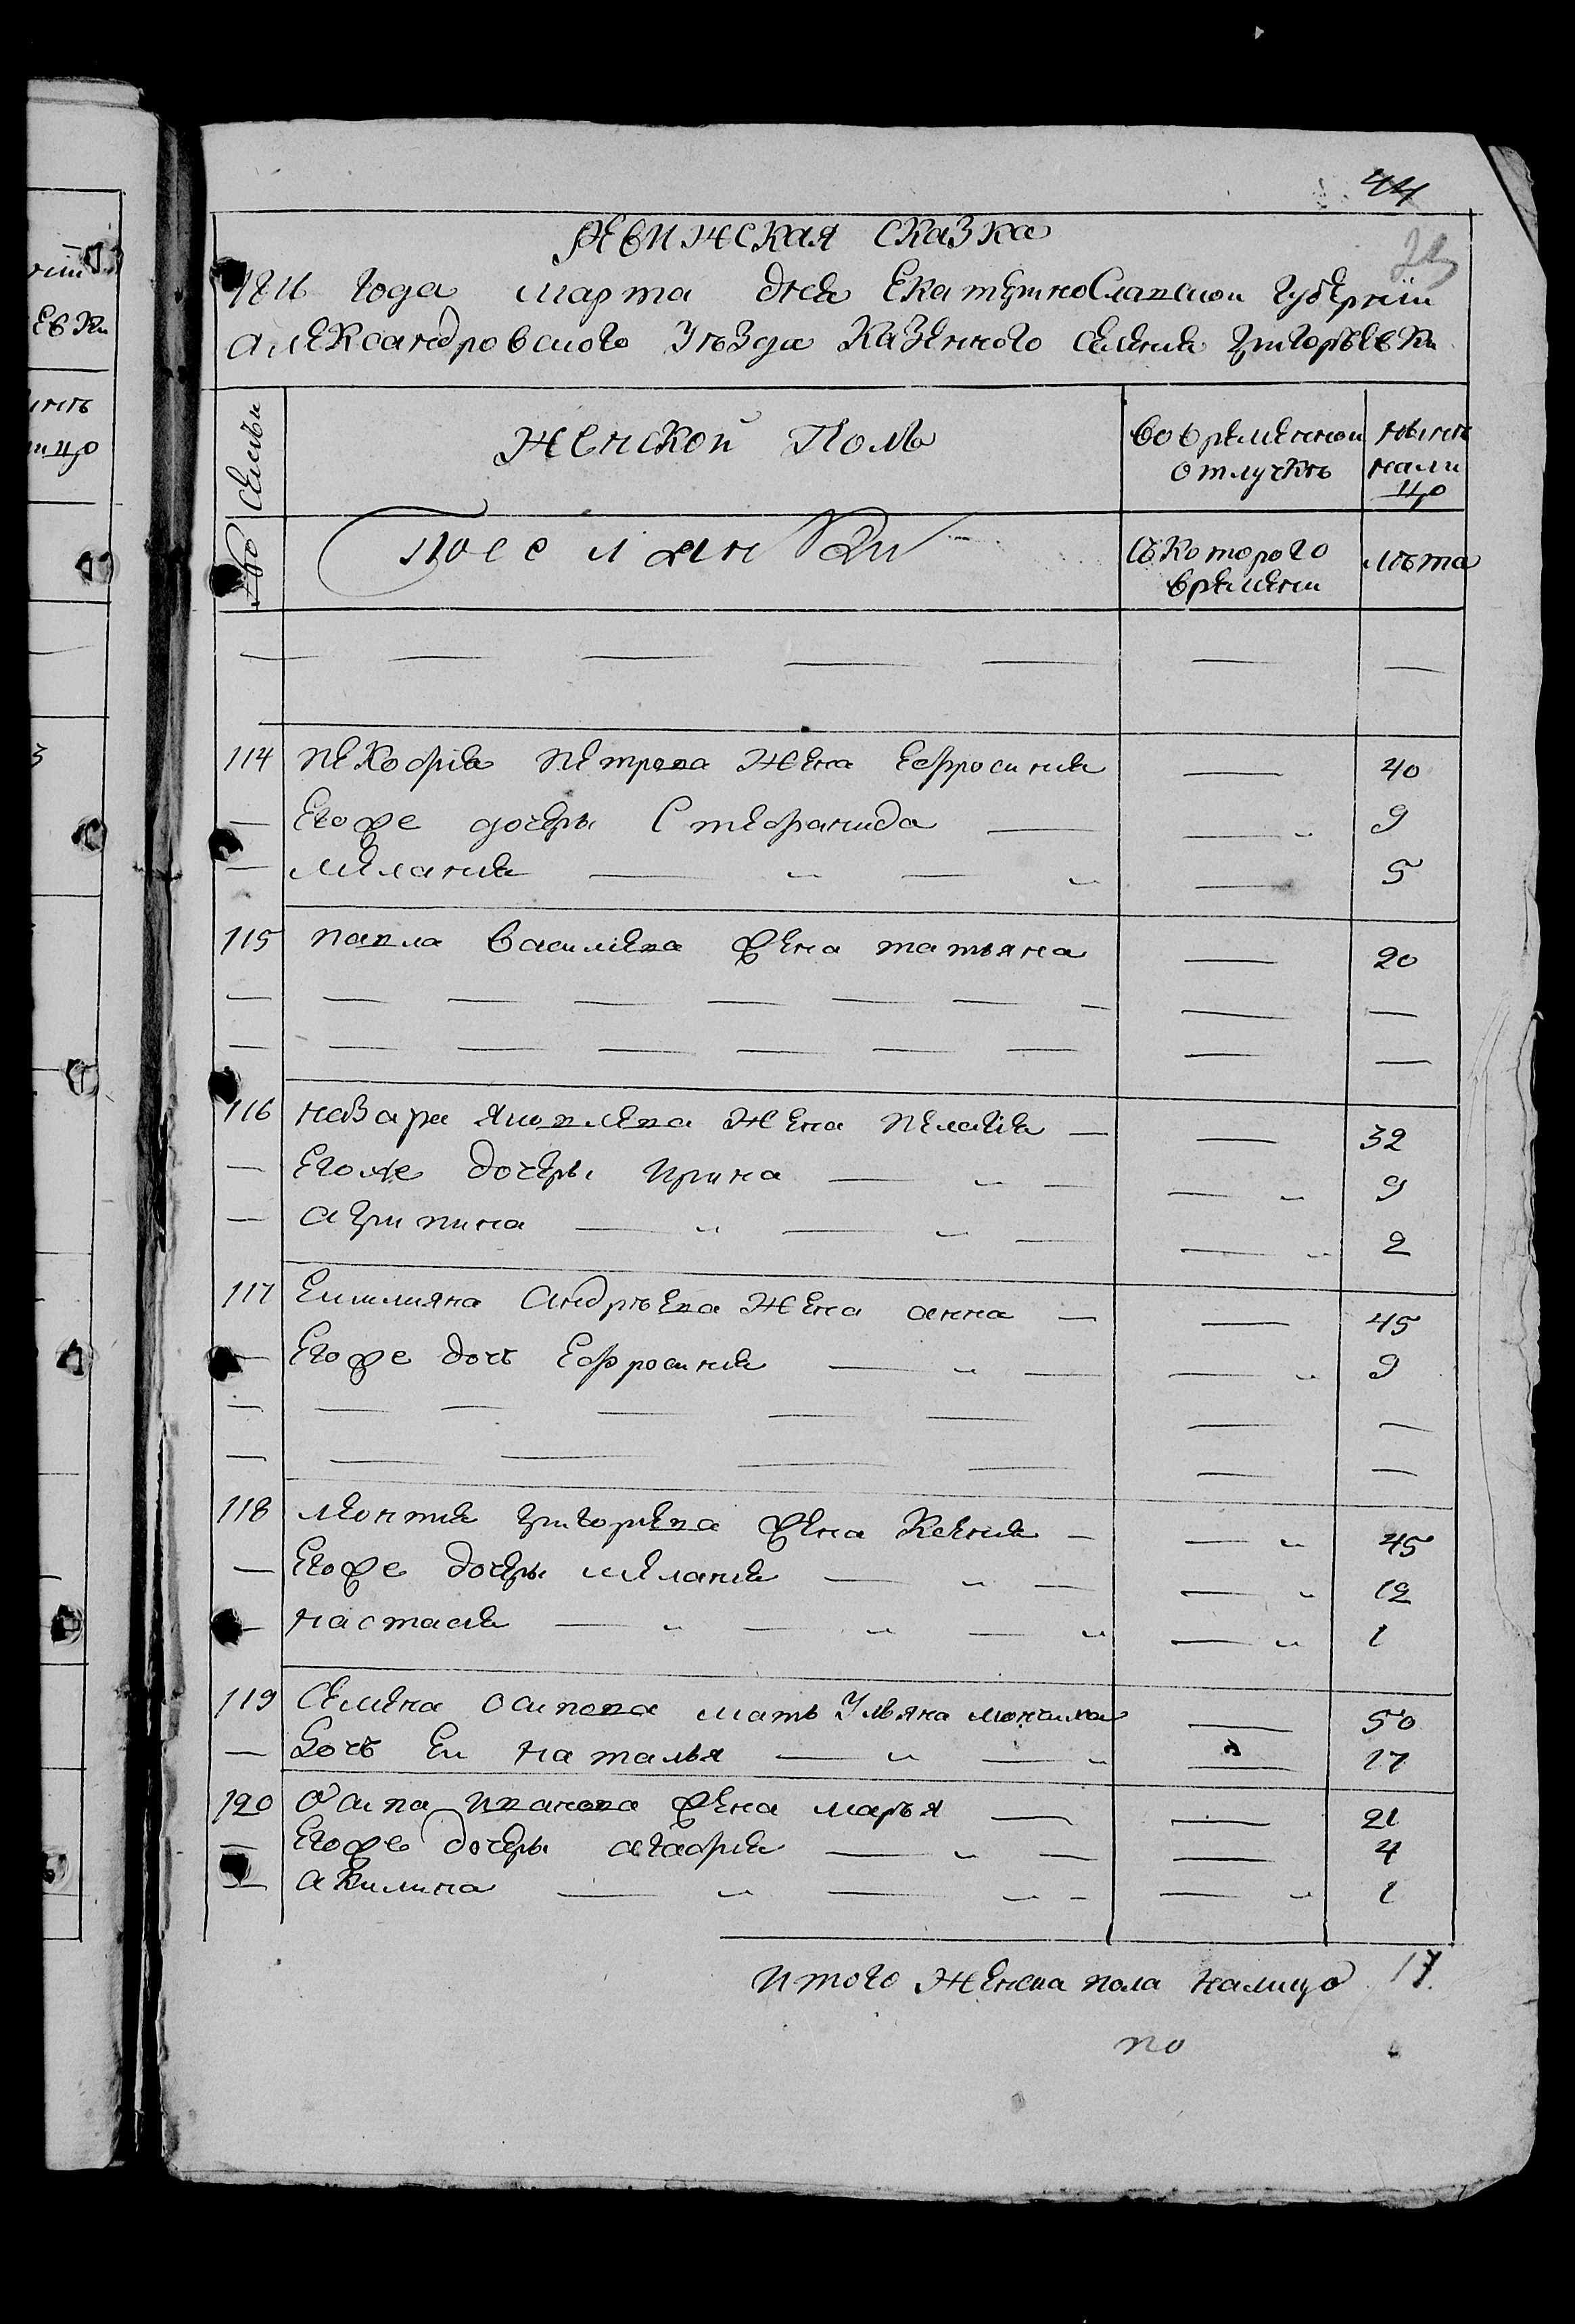 44
Ревижская сказка
1816 года марта дня Екатериославской губернїи
александровского уѣзда казенного селения григорѣевки
№ Семьи
женской Полъ
во временной отлучкѣ
нынѣ налицо
поселянки
съ которого времени
лѣта
114 пекофия петрова жена ефросиния — 40
— Егоже дочери Стефанида — 9
— мелания — 5
115 павла василева жена татьяна — 20
116 назара яковлева жена пелагия — 32
— Егоже дочери ирина — 9
— агрипина — 2
117 Емилияна андрѣева жена анна — 45
— Егоже дочь ефросиния — 9
118 леонтия григориева жена ксения — 45
— Егоже дочери мелания — 12
— настасия — 1
119 Семена осипова мать ульяна — 50
— Дочь еи наталья — 17
120 осипа иванова жена марья — 21
— Егоже дочери агафия — 4
— акилина — 1
итого женска пола налицо 17
по